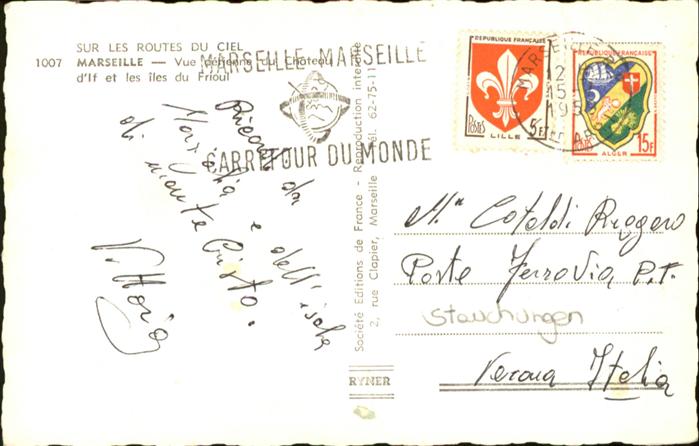 SUR LES ROUTES DU CIEL
1007 MARSEILLE — Vue aérienne du Château
d'If et les îles du Frioul
MARSEILLE MARSEILLE
CARREFOUR DU MONDE
Ricordo da
Marsiglia e dell'isola
di monte Cristo.
Vittorio
Société Editions de France - Reproduction interdite
2, rue Clapier, Marseille Tél. 62-75-11
RYNER
REPUBLIQUE FRANÇAISE
POSTES
5F
LILLE
REPUBLIQUE FRANÇAISE
POSTES
15F
ALGER
MARSEILLE
12
15
Cataldi Ruggero
Poste Ferrovia P.T.
Stauchungen
Verona Italia